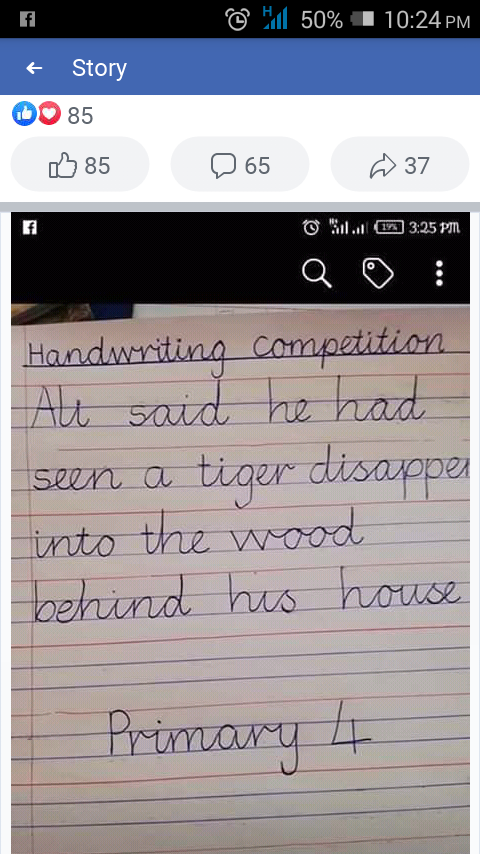 50% 10:24 PM
Story
85
85 65 37
19% 3:25 PM
Handwriting competition
Ali said he had
seen a tiger disappe
into the wood
behind his house
Primary 4